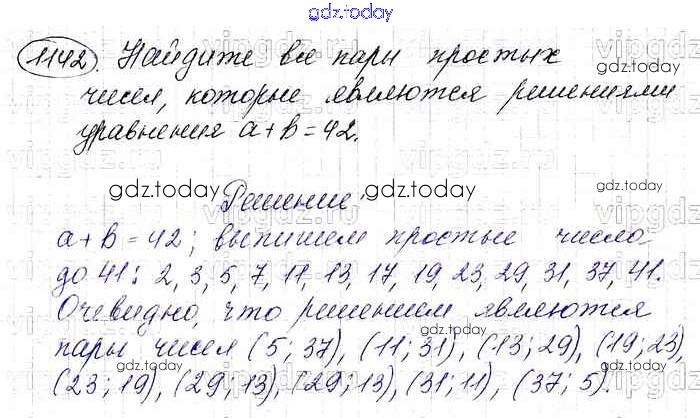 gdz.today
1142. Найдите все пары простых
gdz.today
чисел, которые являются решениями
уравнения a + b = 42.
gdz.today
gdz.today
Решение
a + b = 42; выпишем простые числа
до 41: 2, 3, 5, 7, 11, 13, 17, 19, 23, 29, 31, 37, 41.
Очевидно, что решением являются
gdz.today
gdz.today
пары чисел (5; 37), (11; 31), (13; 29), (19; 23),
(23; 19), (29; 13), (29; 13), (31; 11), (37; 5).
gdz.today